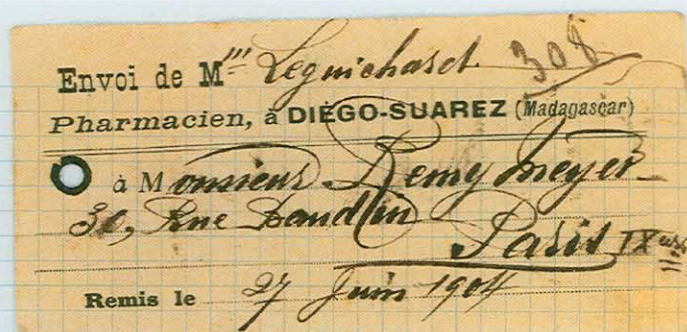 Envoi de M''' Leguichard 308
Pharmacien, à DIÉGO-SUAREZ (Madagascar)
à Monsieur Remy Meyer
30, Rue Baudin
Paris IX
Remis le 27 Juin 1904